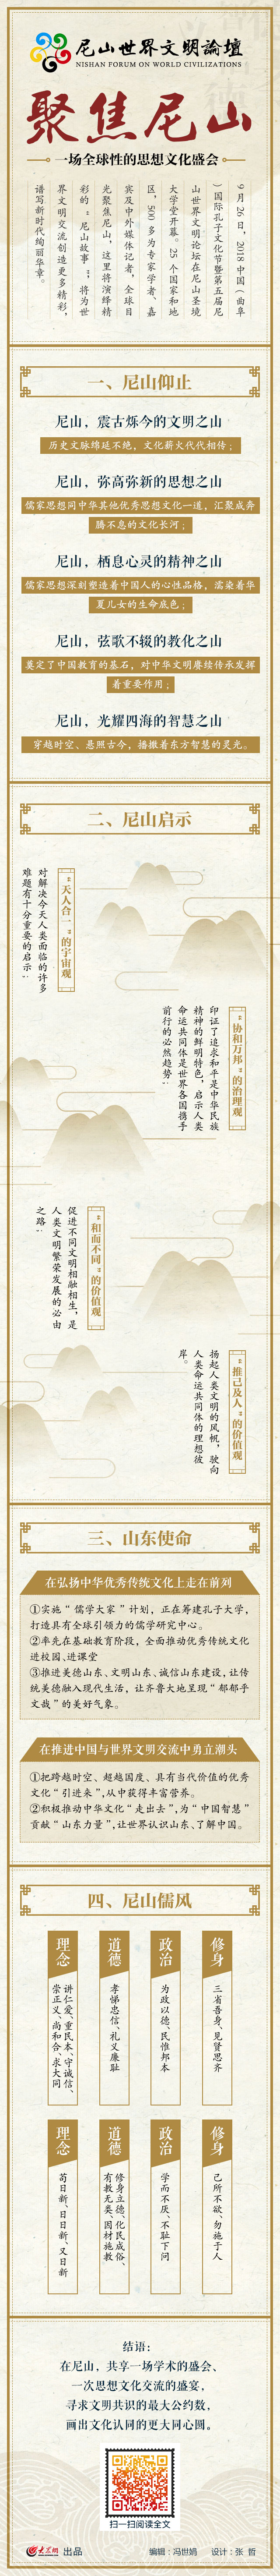 尼山世界文明論壇
NISHAN FORUM ON WORLD CIVILIZATIONS
聚焦尼山
一场全球性的思想文化盛会
9月26日，2018中国（曲阜
）国际孔子文化节暨第五届尼
山世界文明论坛在尼山圣境
大学堂开幕。25个国家和地
区，500多为专家学者、嘉
宾及中外媒体记者，全球目
光聚焦尼山，这里将演绎精
彩的“尼山故事”，将为世
界文明交流创造更多精彩，
谱写新时代绚丽华章。
一、尼山仰止
尼山，震古烁今的文明之山
历史文脉绵延不绝，文化薪火代代相传；
尼山，弥高弥新的思想之山
儒家思想同中华其他优秀思想文化一道，汇聚成奔
腾不息的文化长河；
尼山，栖息心灵的精神之山
儒家思想深刻塑造着中国人的心性品格，濡染着华
夏儿女的生命底色；
尼山，弦歌不辍的教化之山
奠定了中国教育的基石，对中华文明赓续传承发挥
着重要作用；
尼山，光耀四海的智慧之山
穿越时空、悬照古今，播撒着东方智慧的灵光。
二、尼山启示
“天人合一”的宇宙观
对解决今天人类面临的许多
难题有十分重要的启示；
“协和万邦”的治理观
印证了追求和平是中华民族
精神的鲜明特色，启示人类
命运共同体是世界各国携手
前行的必然趋势；
“和而不同”的价值观
促进不同文明相融相生，是
人类文明繁荣发展的必由
之路；
“推己及人”的价值观
扬起人类文明的风帆，驶向
人类命运共同体的理想彼
岸。
三、山东使命
在弘扬中华优秀传统文化上走在前列
①实施“儒学大家”计划，正在筹建孔子大学，
打造具有全球引领力的儒学研究中心。
②率先在基础教育阶段，全面推动优秀传统文化
进校园、进课堂
③推进美德山东、文明山东、诚信山东建设，让传
统美德融入现代生活，让齐鲁大地呈现“郁郁乎
文哉”的美好气象。
在推进中国与世界文明交流中勇立潮头
①把跨越时空、超越国度、具有当代价值的优秀
文化“引进来”，从中获得丰富营养。
②积极推动中华文化“走出去”，为“中国智慧”
贡献“山东力量”，让世界认识山东、了解中国。
四、尼山儒风
修身
三省吾身、见贤思齐
政治
为政以德、民惟邦本
道德
孝悌忠信、礼义廉耻
理念
讲仁爱、重民本、守诚信、
崇正义、尚和合、求大同
修身
己所不欲、勿施于人
政治
学而不厌、不耻下问
道德
修身立德、化民成俗、
有教无类、因材施教
理念
苟日新、日日新、又日新
结语：
在尼山，共享一场学术的盛会、
一次思想文化交流的盛宴，
寻求文明共识的最大公约数，
画出文化认同的更大同心圆。
扫一扫阅读全文
大众网 出品
编辑：冯世娟 设计：张 哲